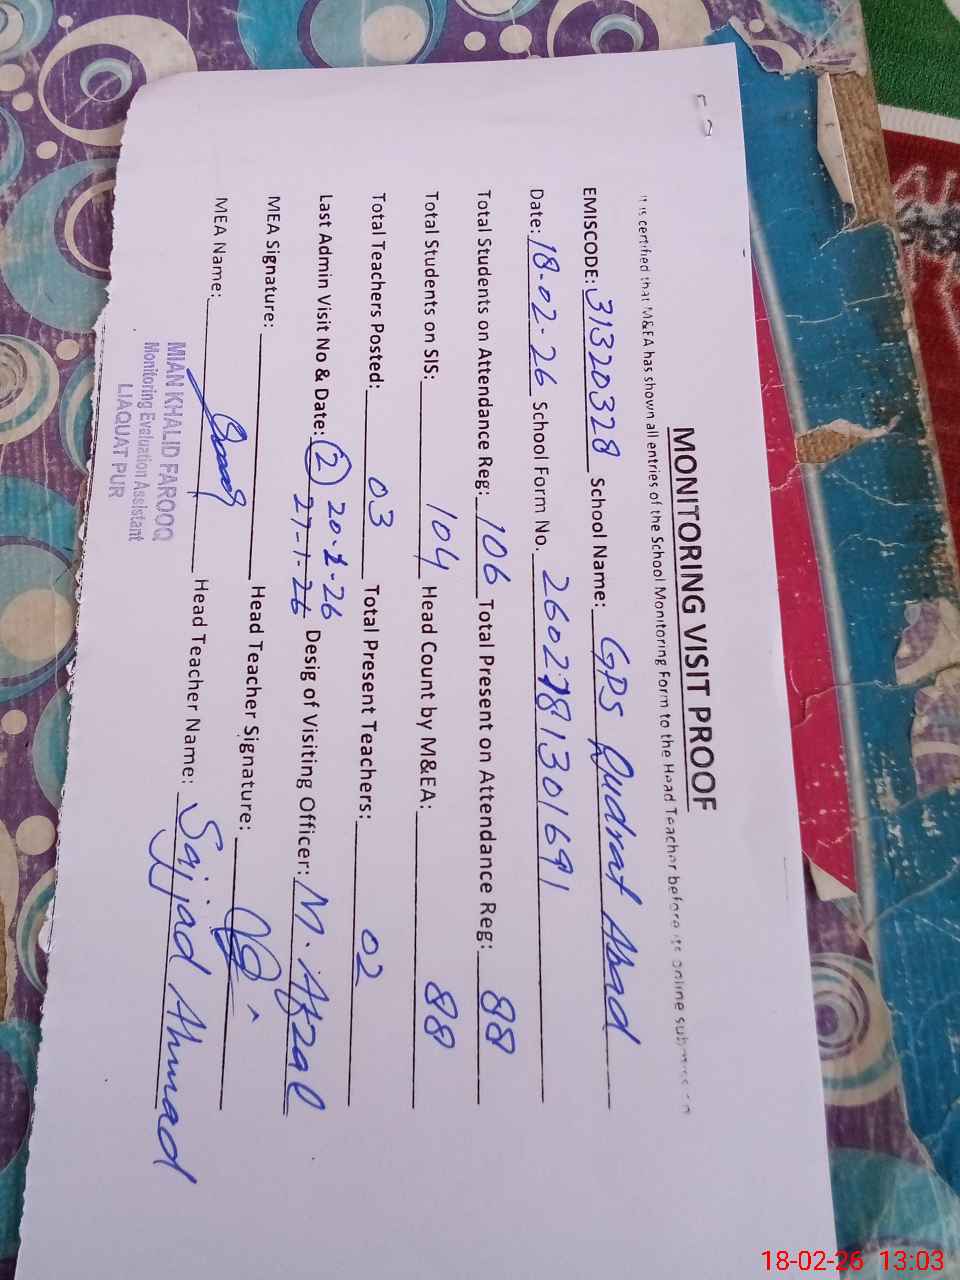 MONITORING VISIT PROOF
It is certified that M&EA has shown all entries of the School Monitoring Form to the Head Teacher before its online submission
EMISCODE: 31320328 School Name: GPS Qudrat Abad
Date: 18-02-26 School Form No. 2602181301691
Total Students on Attendance Reg: 106 Total Present on Attendance Reg: 88
Total Students on SIS: 104 Head Count by M&EA: 88
Total Teachers Posted: 03 Total Present Teachers: 02
Last Admin Visit No & Date: 2 20-1-26 27-1-26 Desig of Visiting Officer: M. Afzal
MEA Signature: Head Teacher Signature:
MEA Name: Head Teacher Name: Sajjad Ahmad
MIAN KHALID FAROOQ
Monitoring Evaluation Assistant
LIAQUAT PUR
18-02-26 13:03